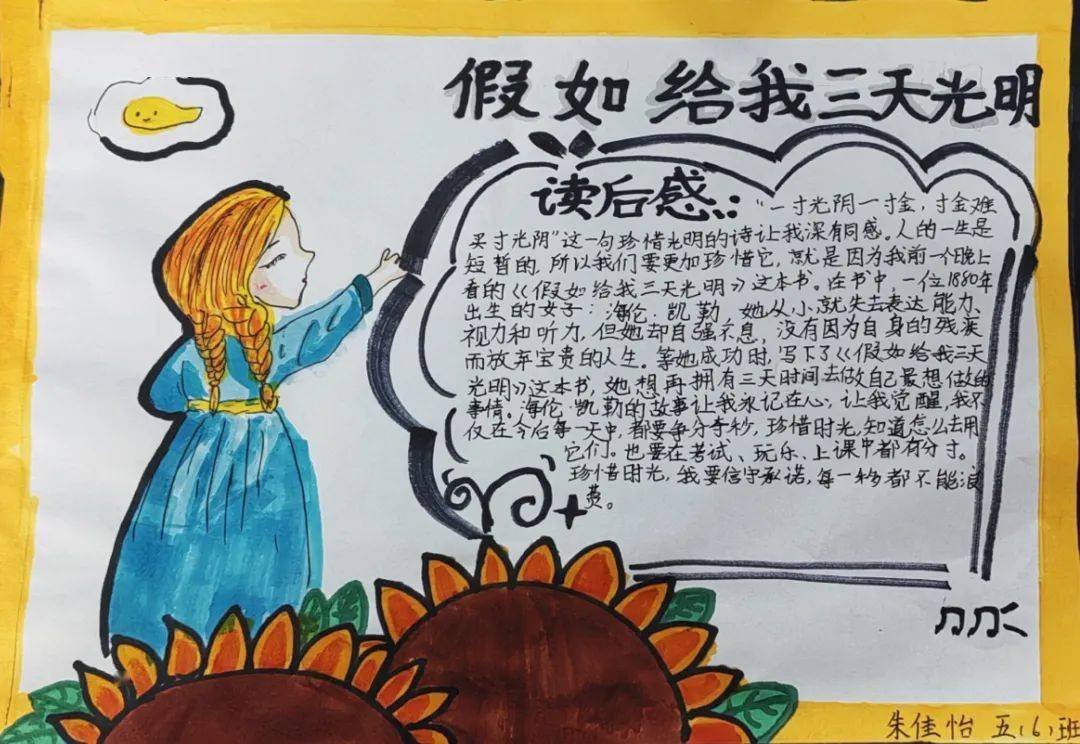 假如给我三天光明
读后感:
“一寸光阴一寸金,寸金难
买寸光阴”这一句珍惜光明的诗让我深有同感。人的一生是
短暂的,所以我们要更加珍惜它,就是因为我前一个晚上
看的《《假如给我三天光明》》这本书。在书中,一位1880年
出生的女子:海伦·凯勒,她从小就失去表达能力、
视力和听力,但她却自强不息,没有因为自身的残疾
而放弃宝贵的人生。等她成功时,写下了《《假如给我三天
光明》》这本书,她想再拥有三天时间去做自己最想做的
事情。海伦·凯勒的故事让我永记在心,让我觉醒,我不
仅在今后每一天中,都要争分夺秒,珍惜时光,知道怎么去用
它们。也要在考试、玩乐、上课中都有分寸。
珍惜时光,我要信守承诺,每一秒都不能浪
费。
朱佳怡 五(6)班